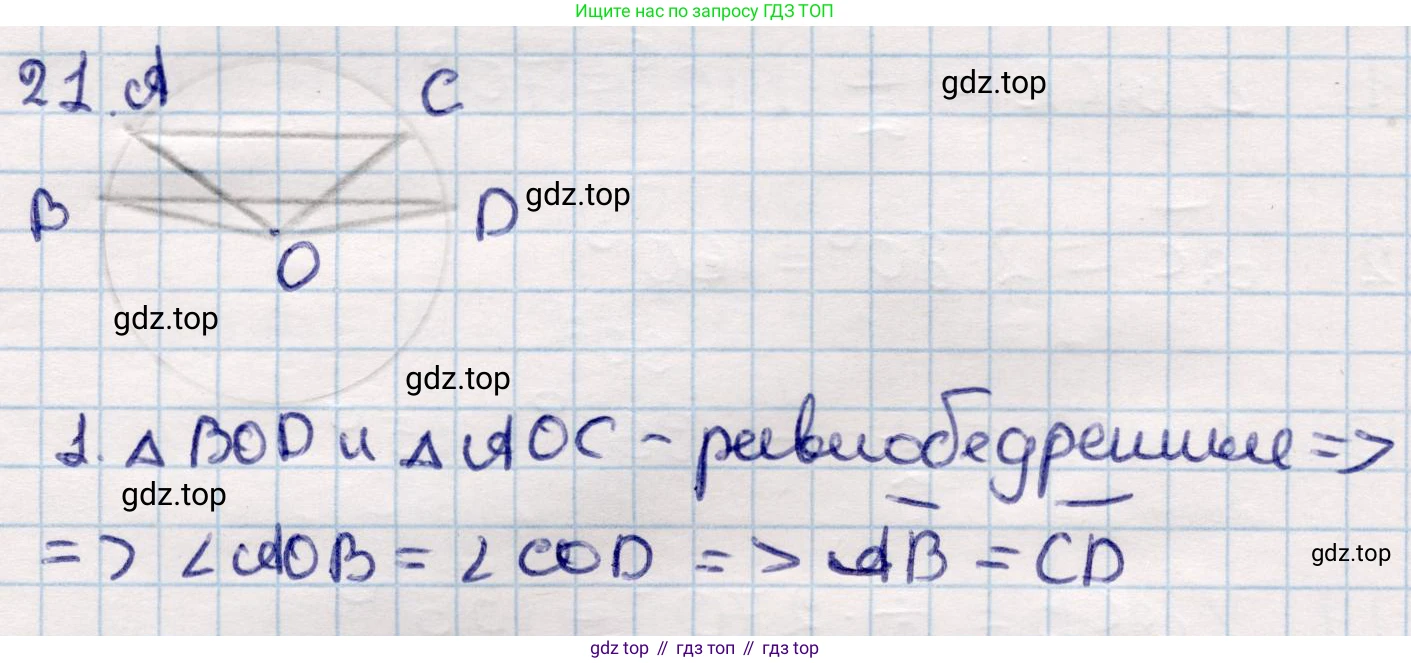 Ищите нас по запросу ГДЗ ТОП
21.
A
C
gdz.top
B
D
gdz.top
O
gdz.top
gdz.top
1. △ BOD и △ AOC - равнобедренные =>
gdz.top
=> ∠AOB = ∠COD => A͞B = C͞D
gdz.top
gdz top // гдз топ // гдз top